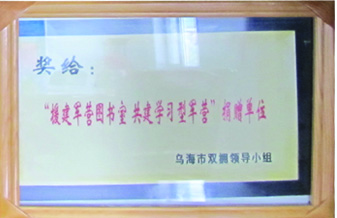 奖给：
“援建军营图书室 共建学习型军营”捐赠单位
乌海市双拥领导小组